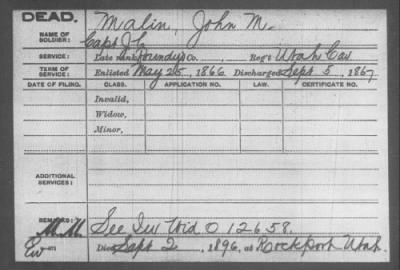 DEAD.
Malin, John M.
NAME OF SOLDIER:
Capt J. C.
SERVICE: Late rank, Founders Co., Reg't Utah Cav
TERM OF SERVICE: Enlisted May 25, 1866 Discharged Sept 5, 1867
DATE OF FILING. CLASS. APPLICATION NO. LAW. CERTIFICATE NO.
Invalid,
Widow,
Minor,
ADDITIONAL SERVICES:
REMARKS: See Ind Wid O 12658.
M.M.
Died Sept 2, 1896, at Rockport Utah.